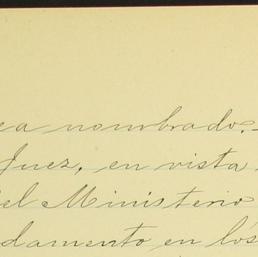 ea nombrado.-
Juez, en vista
el Ministerio
damento en los